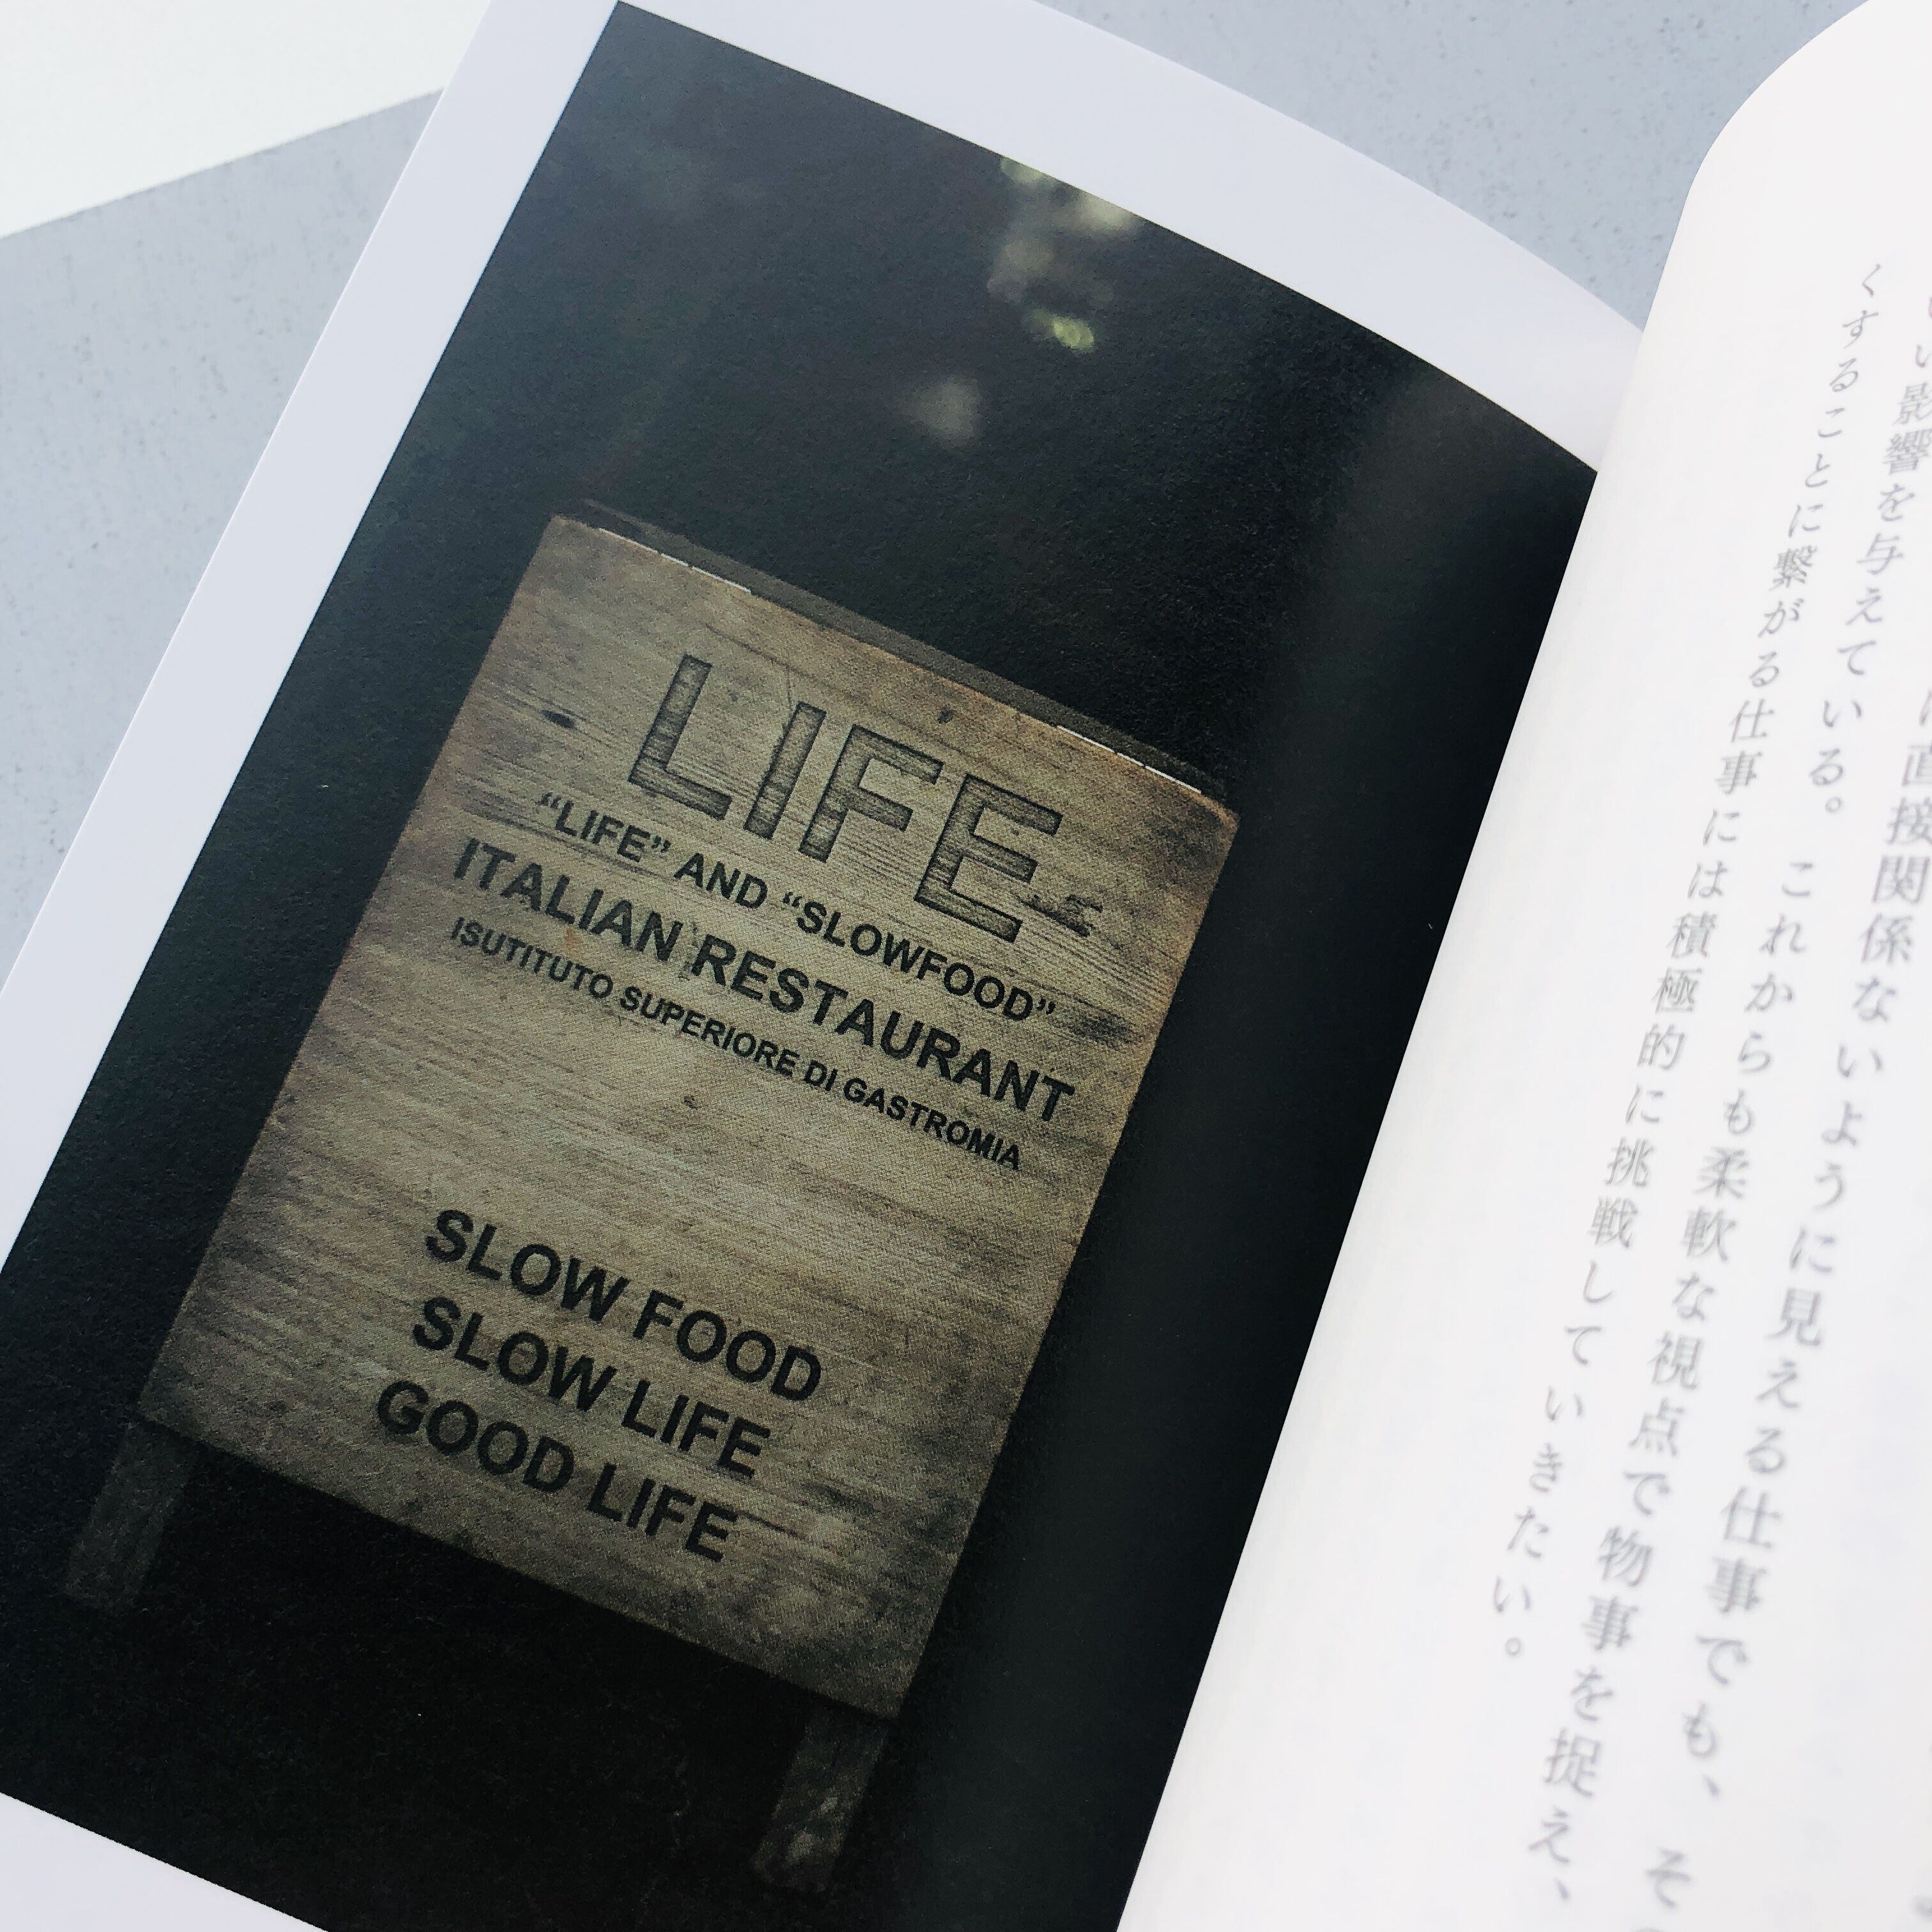 LIFE
“LIFE” AND “SLOWFOOD”
ITALIAN RESTAURANT
ISUTITUTO SUPERIORE DI GASTROMIA
SLOW FOOD
SLOW LIFE
GOOD LIFE
直接関係ないように見える仕事でも、そ
い影響を与えている。これからも柔軟な視点で物事を捉え、
くすることに繋がる仕事には積極的に挑戦していきたい。